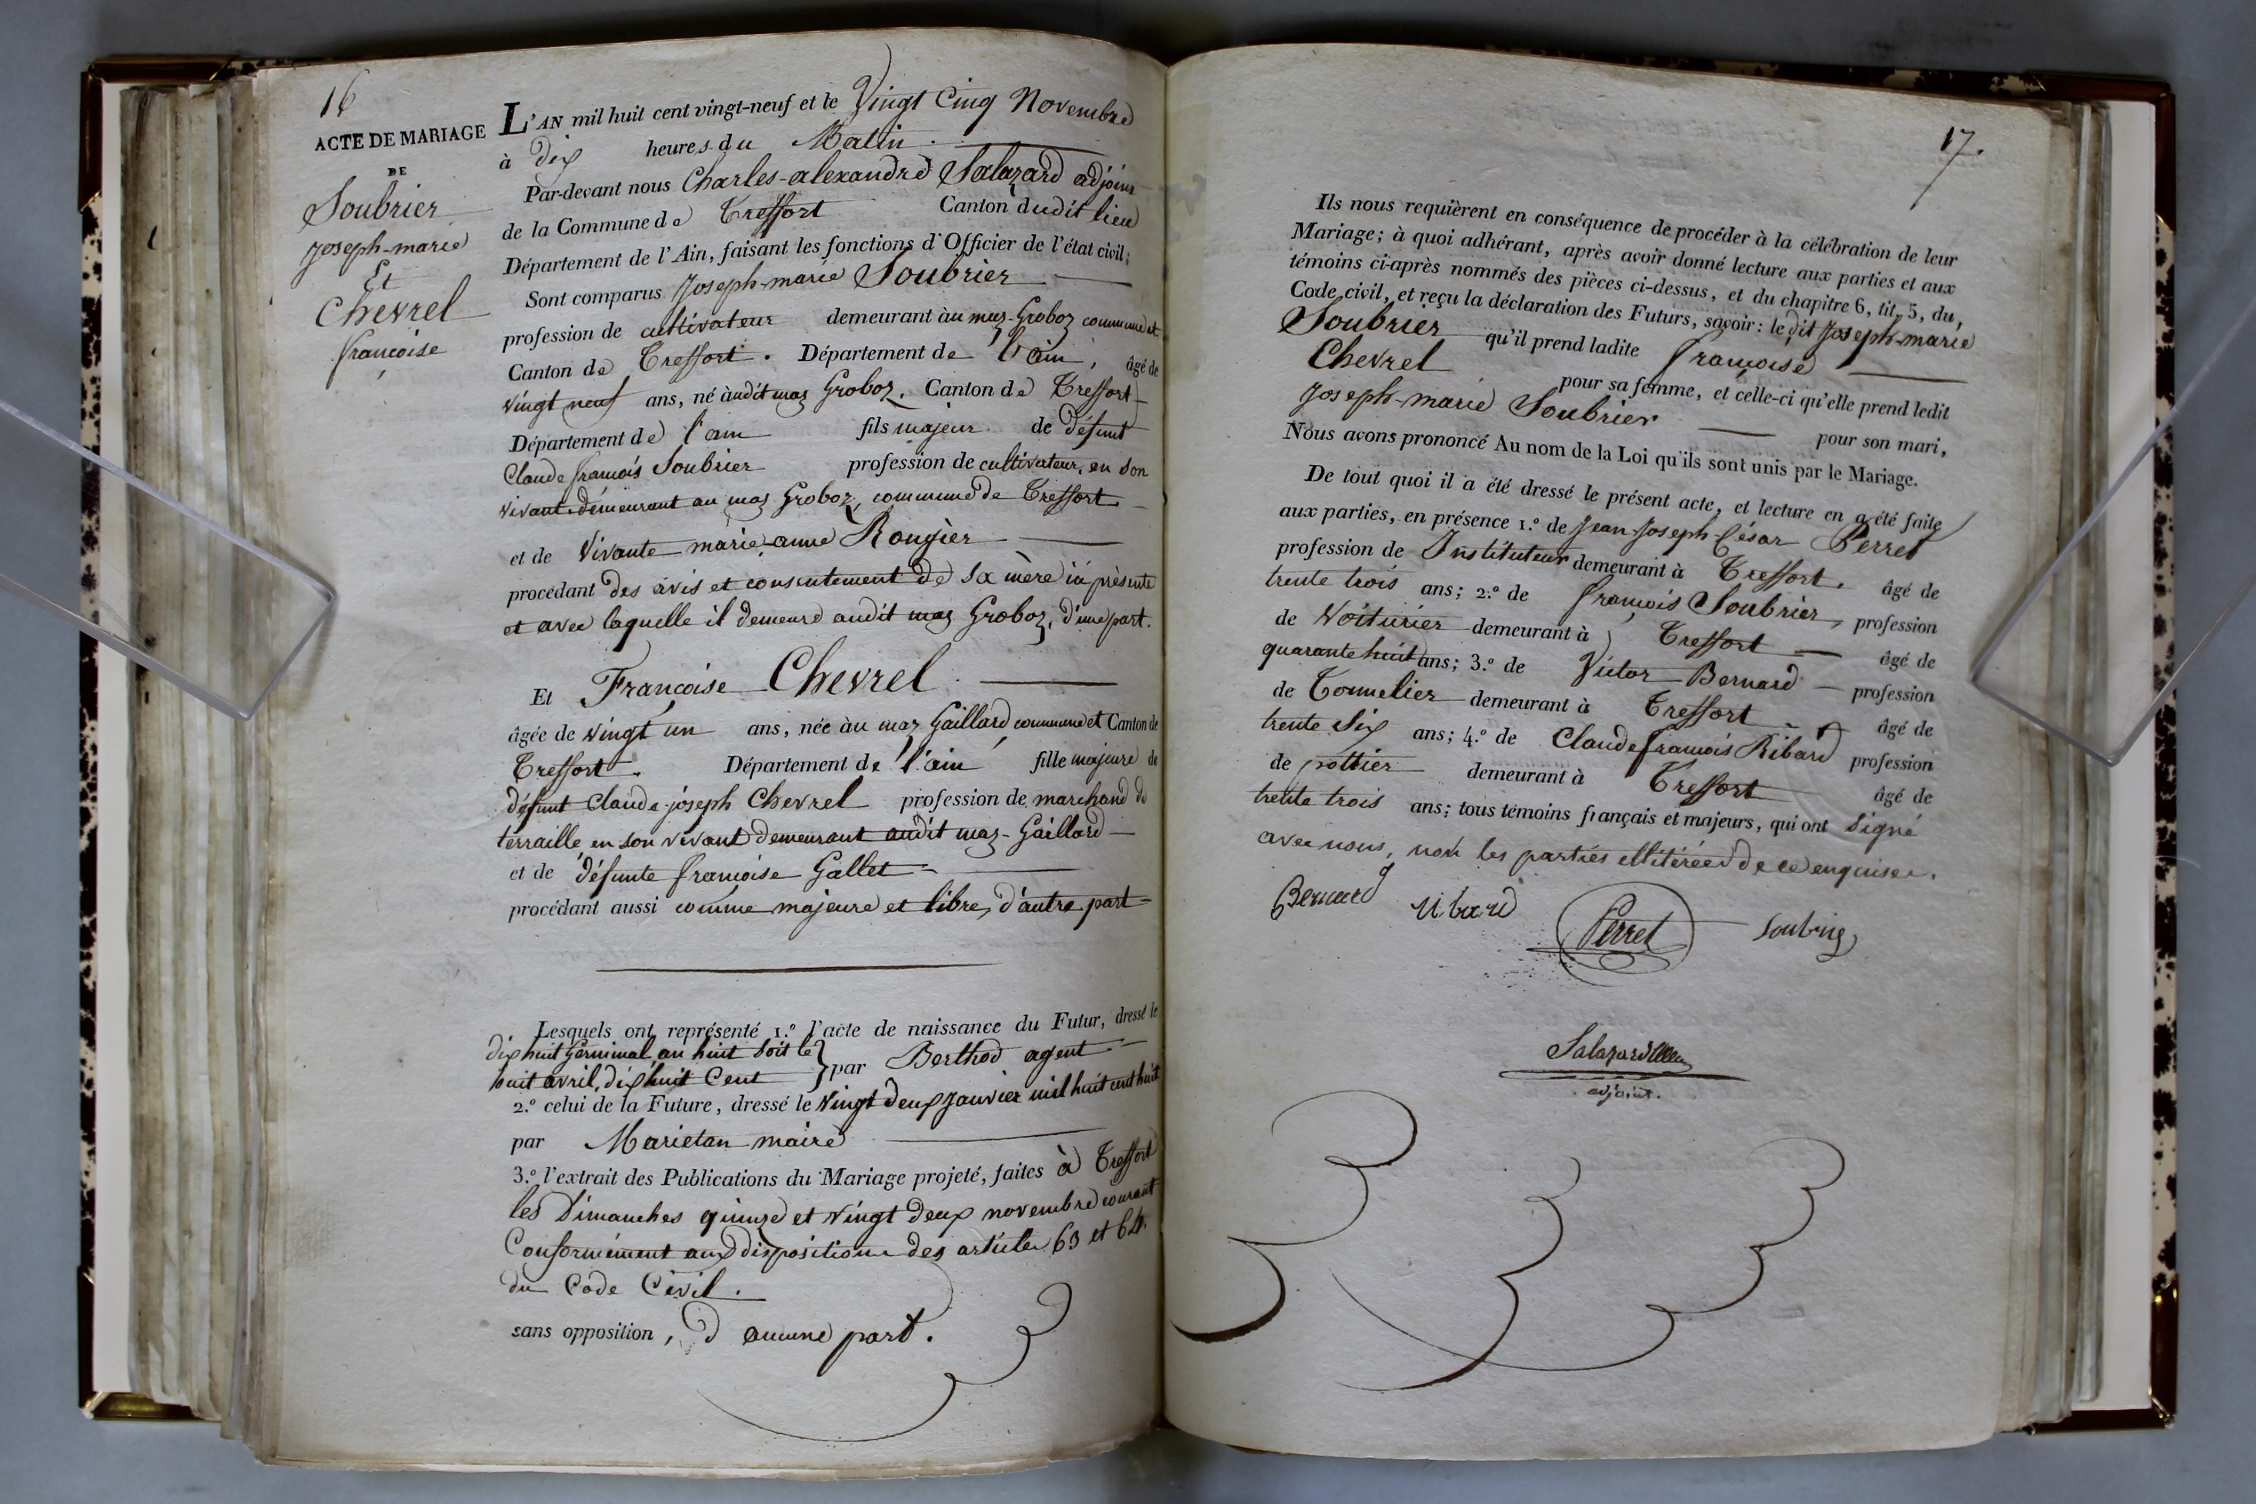 16
ACTE DE MARIAGE
DE
Soubrier
Joseph-marie
Et
Chevrel
françoise
L'AN mil huit cent vingt-neuf et le Vingt Cinq Novembre
à dix heures du Matin.
Par-devant nous Charles-alexandre Salazard adjoint
de la Commune de Treffort Canton dudit lieu
Département de l'Ain, faisant les fonctions d'Officier de l'état civil;
Sont comparus Joseph-marie Soubrier
profession de cultivateur demeurant àu mas-Groboz commune et
Canton de Treffort. Département de l'ain, âgé de
vingt neuf ans, né àudit mas Groboz. Canton de Treffort
Département de l'ain fils majeur de défunt
Claude françois Soubrier profession de cultivateur, en son
vivant demeurant au mas Groboz, commune de Treffort
et de Vivante marie-anne Rougier
procédant des avis et consentement de sa mère ici présente
et avec laquelle il demeure audit mas Groboz, d'une part.
Et Françoise Chevrel
âgée de vingt un ans, née àu mas Gaillard, commune et Canton de
Treffort. Département de l'ain fille majeure de
défunt Claude-joseph Chevrel profession de marchand de
terraille, en son vivant demeurant audit mas-Gaillard
et de défunte françoise Gallet
procédant aussi comme majeure et libre, d'autre part
Lesquels ont représenté 1.º l'acte de naissance du Futur, dressé le
dix huit Germinal an huit soit le
huit avril, dix huit Cent } par Berthod agent
2.º celui de la Future, dressé le vingt deux janvier mil huit cent huit
par Marietan maire
3.º l'extrait des Publications du Mariage projeté, faites à Treffort
les Dimanches quinze et vingt deux novembre courant
Conformément aux dispositions des articles 63 et 64
du Code Civil.
sans opposition, d'aucune part.
17.
Ils nous requièrent en conséquence de procéder à la célébration de leur
Mariage; à quoi adhérant, après avoir donné lecture aux parties et aux
témoins ci-après nommés des pièces ci-dessus, et du chapitre 6, tit. 5, du,
Code civil, et reçu la déclaration des Futurs, savoir: le dit Joseph-marie
Soubrier qu'il prend ladite françoise
Chevrel pour sa femme, et celle-ci qu'elle prend ledit
Joseph-marie Soubrier pour son mari,
Nous avons prononcé Au nom de la Loi qu'ils sont unis par le Mariage.
De tout quoi il a été dressé le présent acte, et lecture en a été faite
aux parties, en présence 1.º de Jean-Joseph-César Perret
profession de Instituteur demeurant à Treffort. âgé de
trente trois ans; 2.º de françois Soubrier, profession
de Voiturier demeurant à Treffort âgé de
quarante huit ans; 3.º de Victor Bernard profession
de Tonnelier demeurant à Treffort âgé de
trente six ans; 4.º de Claude françois Ribard profession
de pottier demeurant à Treffort âgé de
trente trois ans; tous témoins français et majeurs, qui ont signé
avec nous, non les parties illitérées de ce enquises.
Bernard Ribard Perret Soubrier
Salazard
adjoint.